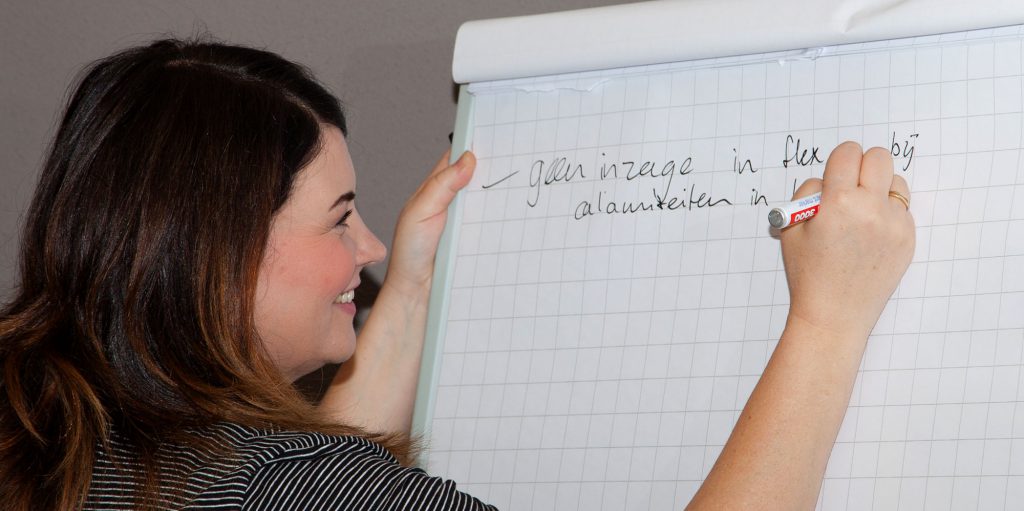 - geen inzage in flex bij
calamiteiten in
3000